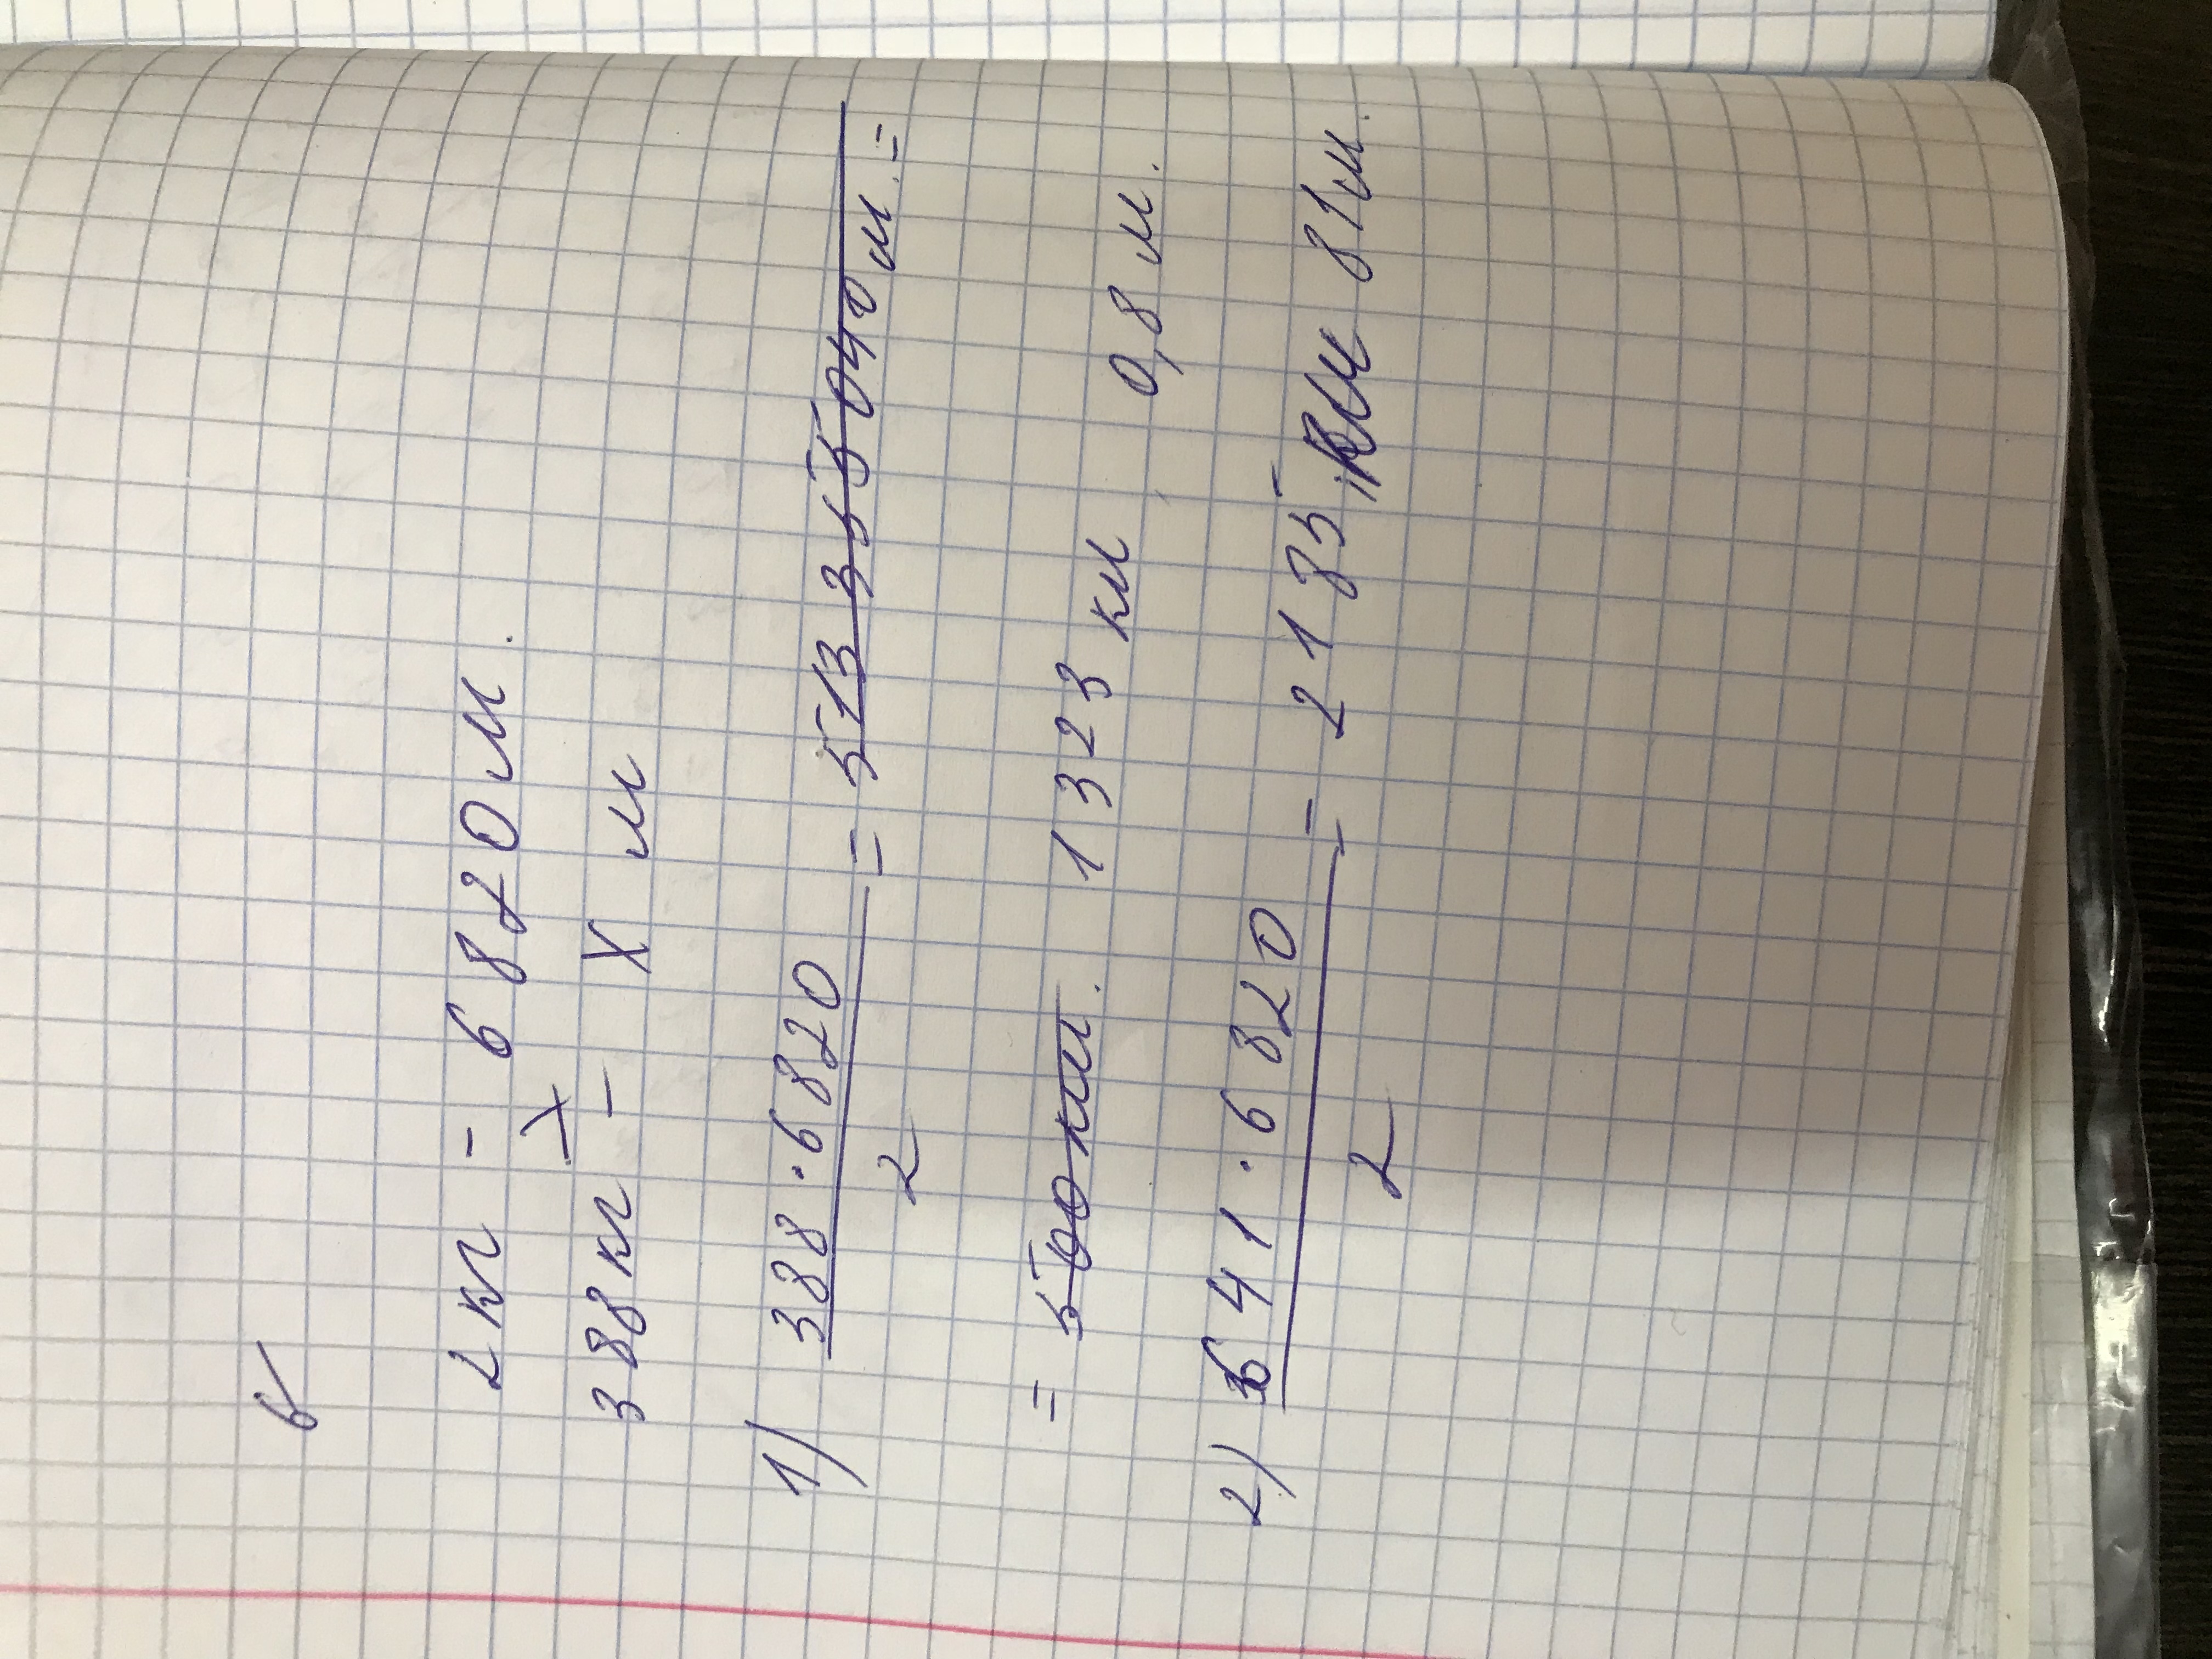 б
2кг - 6820м.
388кг - х м
1) 388·6820 / 2 = 513355040 м. =
= 500 км. 1323 км 0,8 м.
2) 641·6820 / 2 = 2185, км 81м.